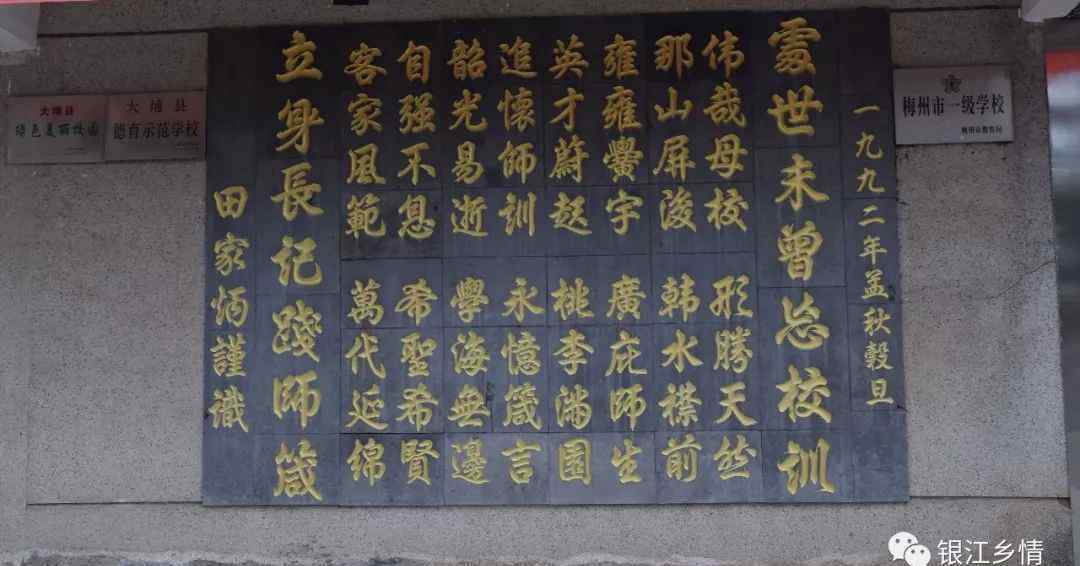 梅州市一级学校
梅州市教育局
一九九二年孟秋穀旦
處世未曾忘校训
伟哉母校 形勝天然
那山屏浚 韩水襟前
雍雍黌宇 廣庇师生
英才蔚起 桃李满園
追懷师训 永憶箴言
韶光易逝 學海無邊
自强不息 希聖希賢
客家風範 萬代延绵
立身長记踐師箴
田家炳謹識
大埔县
德育示范学校
大埔县
绿色美丽校园
银江乡情